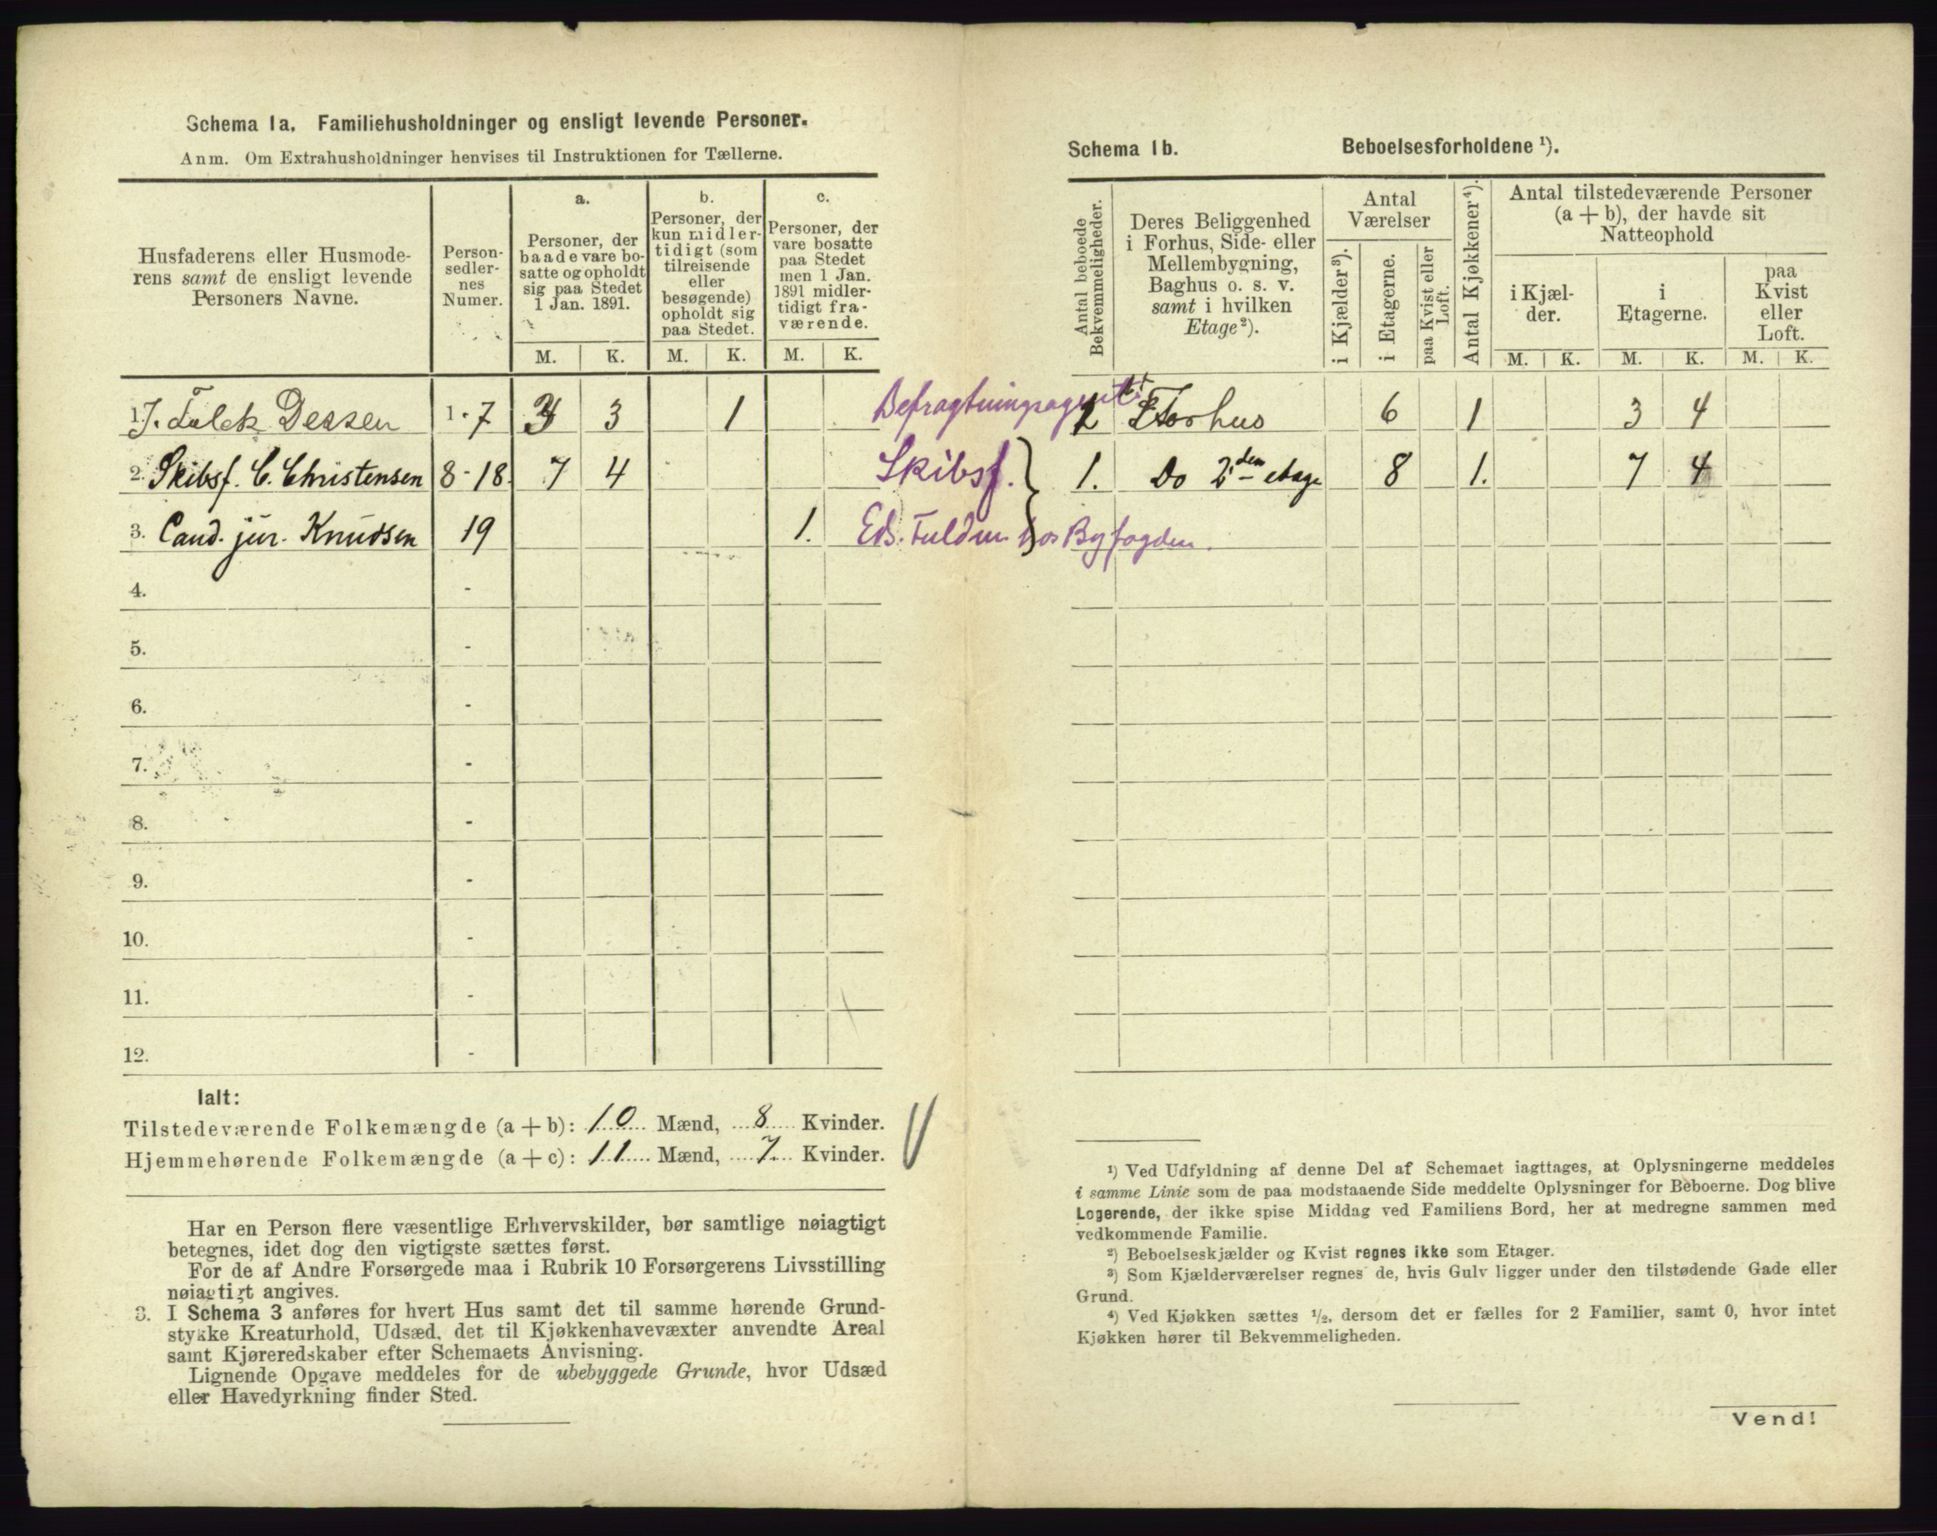 Schema 1a. Familiehusholdninger og ensligt levende Personer.
Anm. Om Extrahusholdninger henvises til Instruktionen for Tællerne.
Husfaderens eller Husmode-
rens samt de ensligt levende
Personers Navne.
Person-
sedler-
nes
Numer.
a.
Personer, der
baade vare bo-
satte og opholdt
sig paa Stedet
1 Jan. 1891.
b.
Personer, der
kun midler-
tidigt (som
tilreisende
eller
besøgende)
opholdt sig
paa Stedet.
c.
Personer, der
vare bosatte
paa Stedet
men 1 Jan.
1891 midler-
tidigt fra-
værende.
M. K. M. K. M. K.
1. J. Falck Dessen 1-7 3 3 1
2. Skibsf. C. Christensen 8-18. 7 4
3. Cand. jur. Knudsen 19 1.
4. -
5. -
6. -
7. -
8. -
9. -
10. -
11. -
12. -
Ialt:
Tilstedeværende Folkemængde (a + b): 10 Mænd, 8 Kvinder.
Hjemmehørende Folkemængde (a + c): 11 Mænd, 7 Kvinder.
Har en Person flere væsentlige Erhvervskilder, bør samtlige nøiagtigt
betegnes, idet dog den vigtigste sættes først.
For de af Andre Forsørgede maa i Rubrik 10 Forsørgerens Livsstilling
nøiagtigt angives.
3. I Schema 3 anføres for hvert Hus samt det til samme hørende Grund-
stykke Kreaturhold, Udsæd, det til Kjøkkenhavevæxter anvendte Areal
samt Kjøreredskaber efter Schemaets Anvisning.
Lignende Opgave meddeles for de ubebyggede Grunde, hvor Udsæd
eller Havedyrkning finder Sted.
Schema 1b. Beboelsesforholdene ¹).
Antal beboede
Bekvemmeligheder.
Deres Beliggenhed
i Forhus, Side- eller
Mellembygning,
Baghus o. s. v.
samt i hvilken
Etage²).
Antal
Værelser
i Kjælder³).
i Etagerne.
paa Kvist eller
Loft.
Antal Kjøkkener⁴).
Antal tilstedeværende Personer
(a + b), der havde sit
Natteophold
i Kjæl-
der.
i
Etagerne.
paa
Kvist
eller
Loft.
M. K. M. K. M. K.
Befragtningsagent Forhus 6 1 3 4
Skibsf. 1. Do 2den etage 8 1. 7 4
Eds. Fuldm. hos Byfogden.
¹) Ved Udfyldning af denne Del af Schemaet iagttages, at Oplysningerne meddeles
i samme Linie som de paa modstaaende Side meddelte Oplysninger for Beboerne. Dog blive
Logerende, der ikke spise Middag ved Familiens Bord, her at medregne sammen med
vedkommende Familie.
²) Beboelseskjælder og Kvist regnes ikke som Etager.
³) Som Kjælderværelser regnes de, hvis Gulv ligger under den tilstødende Gade eller
Grund.
⁴) Ved Kjøkken sættes ½, dersom det er fælles for 2 Familier, samt 0, hvor intet
Kjøkken hører til Bekvemmeligheden.
Vend!